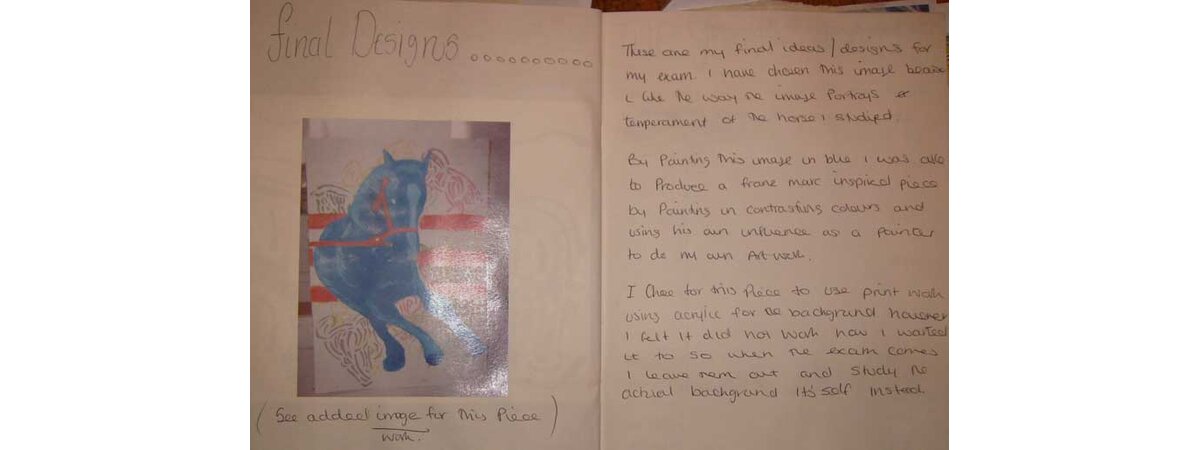 final Designs ..........
(See added image for this Piece)
work.
These are my final ideas/designs for
my exam. I have chosen this image
I like the way the image Portrays
temperament of the horse I studied.
By Painting this image in blue I was able
to Produce a franz marc inspired piece
by Painting in contrasting colours and
using his own influence as a painter
to do my own Art work.
I for this Piece to use print work
using acrylic for the background however
I felt it did not work how I wanted
it to so when the exam comes
I leave them out and study the
actual background its self instead.